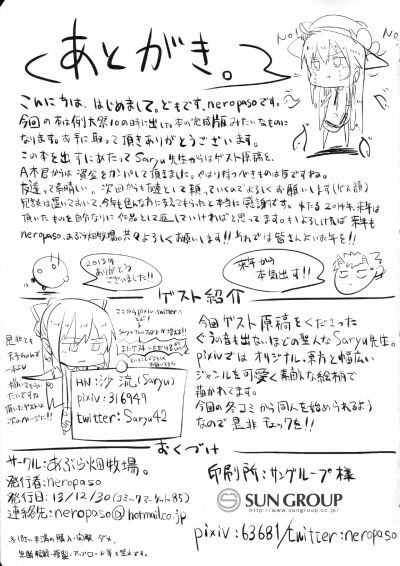 あとがき。
No!
No!
こんにちは、はじめまして。どもです、neropasoです。
今回の本は例大祭10の時に出した本の完成版みたいなものに
なります。お手に取って頂きありがとうございます。
この本を出すにあたってSaryu先生からはゲスト原稿を、
A木君からは資金をカンパして頂きました。やはり持つべきものは友ですね。
友達って素晴しい。次回からも友達として頼っていくのでよろしくお願いします(ゲス顔)
冗談は置いておいて、今年も色んな方に支えてもらったと本当に感謝です。来たる2014年、来年は
頂いたものを自分なりに作品として返していければと思ってます。もしよろしければ来年も
neropaso、あぶら畑牧場。共々よろしくお願いします!!それでは皆さんよいお年を!!
2013年
ありがとう
ございました!!
来年から
本気出す!!
ゲスト紹介
ここからpixiv、twitterに
是非とも
HN:沙流(Saryu)
pixiv:316949
twitter:Saryu42
今回ゲスト原稿をくださった
ぐうの音も出ないほどの聖人なSaryu先生。
pixivではオリジナル、東方と幅広い
ジャンルを可愛く素敵な絵柄で
描かれてます。
今回の冬コミから同人を始められるよう
なので是非チェックを!!
おくづけ
サークル:あぶら畑牧場。
発行者:neropaso
発行日:13/12/30(コミックマーケット85)
連絡先:neropaso@hotmail.co.jp
印刷所:サングループ様
SUN GROUP
http://www.sungroup.co.jp/
pixiv:63681/twitter:neropaso